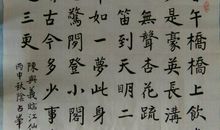 午橋橋上飲
是豪英長溝
無聲杏花疏
笛到天明二
年如一夢此身
驚閒登小閣
古今多少事
三更
陳與義臨江仙
丙申秋